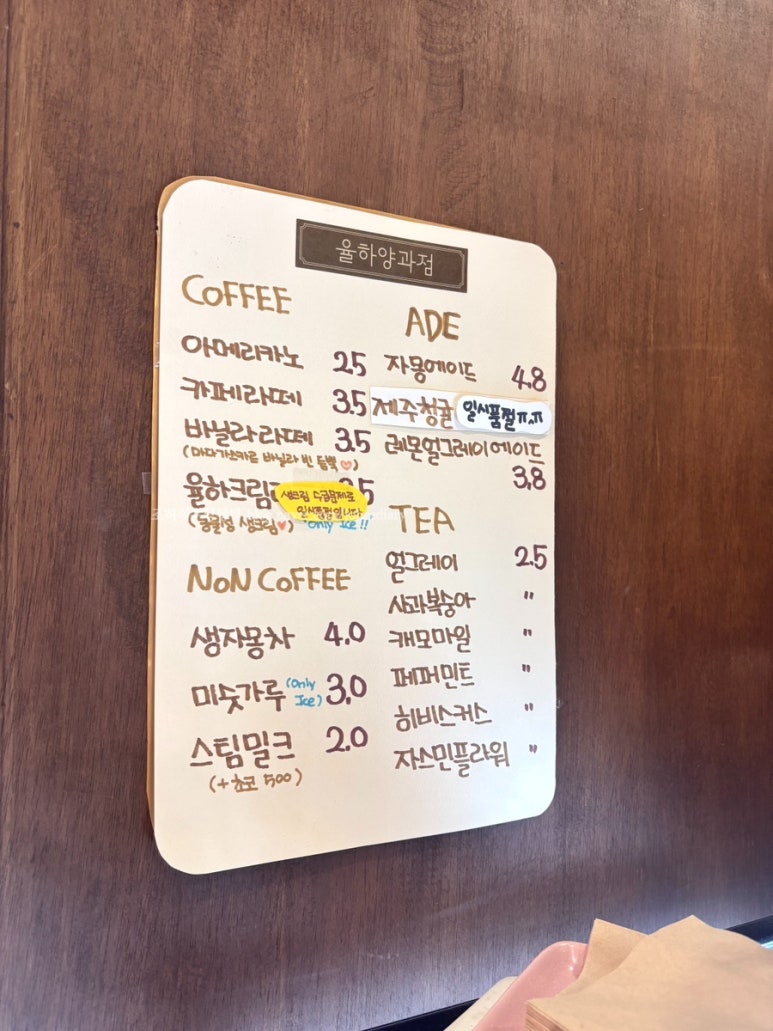 율하양과점
COFFEE
아메리카노 2.5
카페라떼 3.5
바닐라라떼 3.5
(마다가스카르 바닐라 빈 듬뿍♡)
율하크림 5
생크림 수급문제로
일시품절입니다
(동물성 생크림♥) Only Ice!!
NON COFFEE
생자몽차 4.0
미숫가루 (Only Ice) 3.0
스팀밀크 2.0
(+초코 500)
ADE
자몽에이드 4.8
제주청귤 일시품절ㅠ.ㅠ
레몬얼그레이에이드
3.8
TEA
얼그레이 2.5
사과복숭아 "
캐모마일 "
페퍼민트 "
히비스커스 "
자스민플라워 "